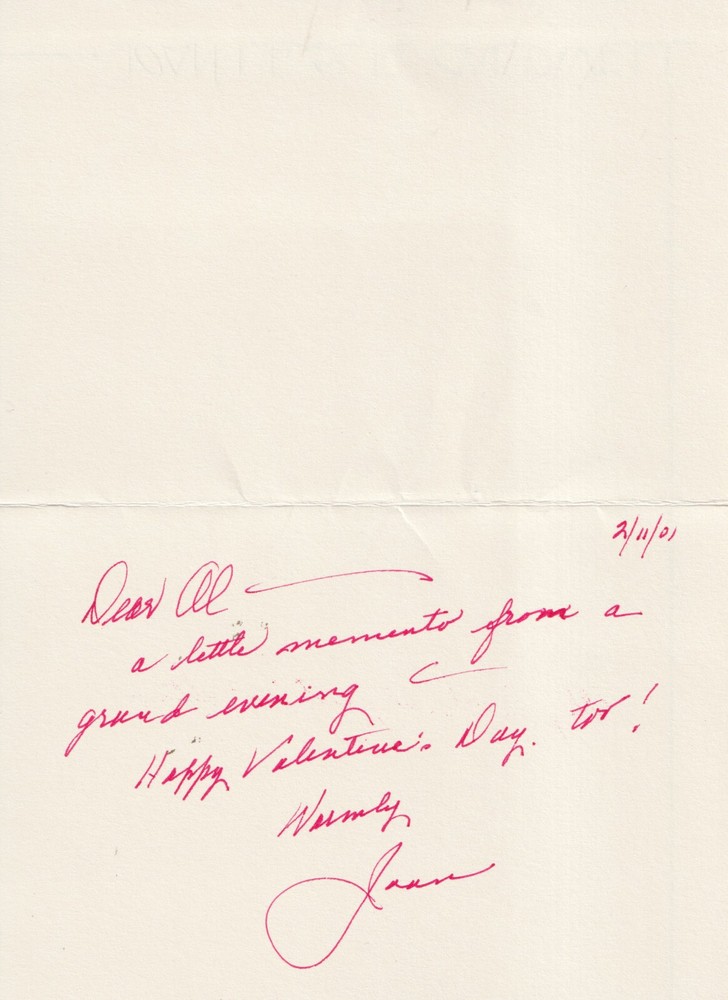 2/11/01
Dear Al —
a little memento from a
grand evening —
Happy Valentine's Day, too!
Warmly
Joan